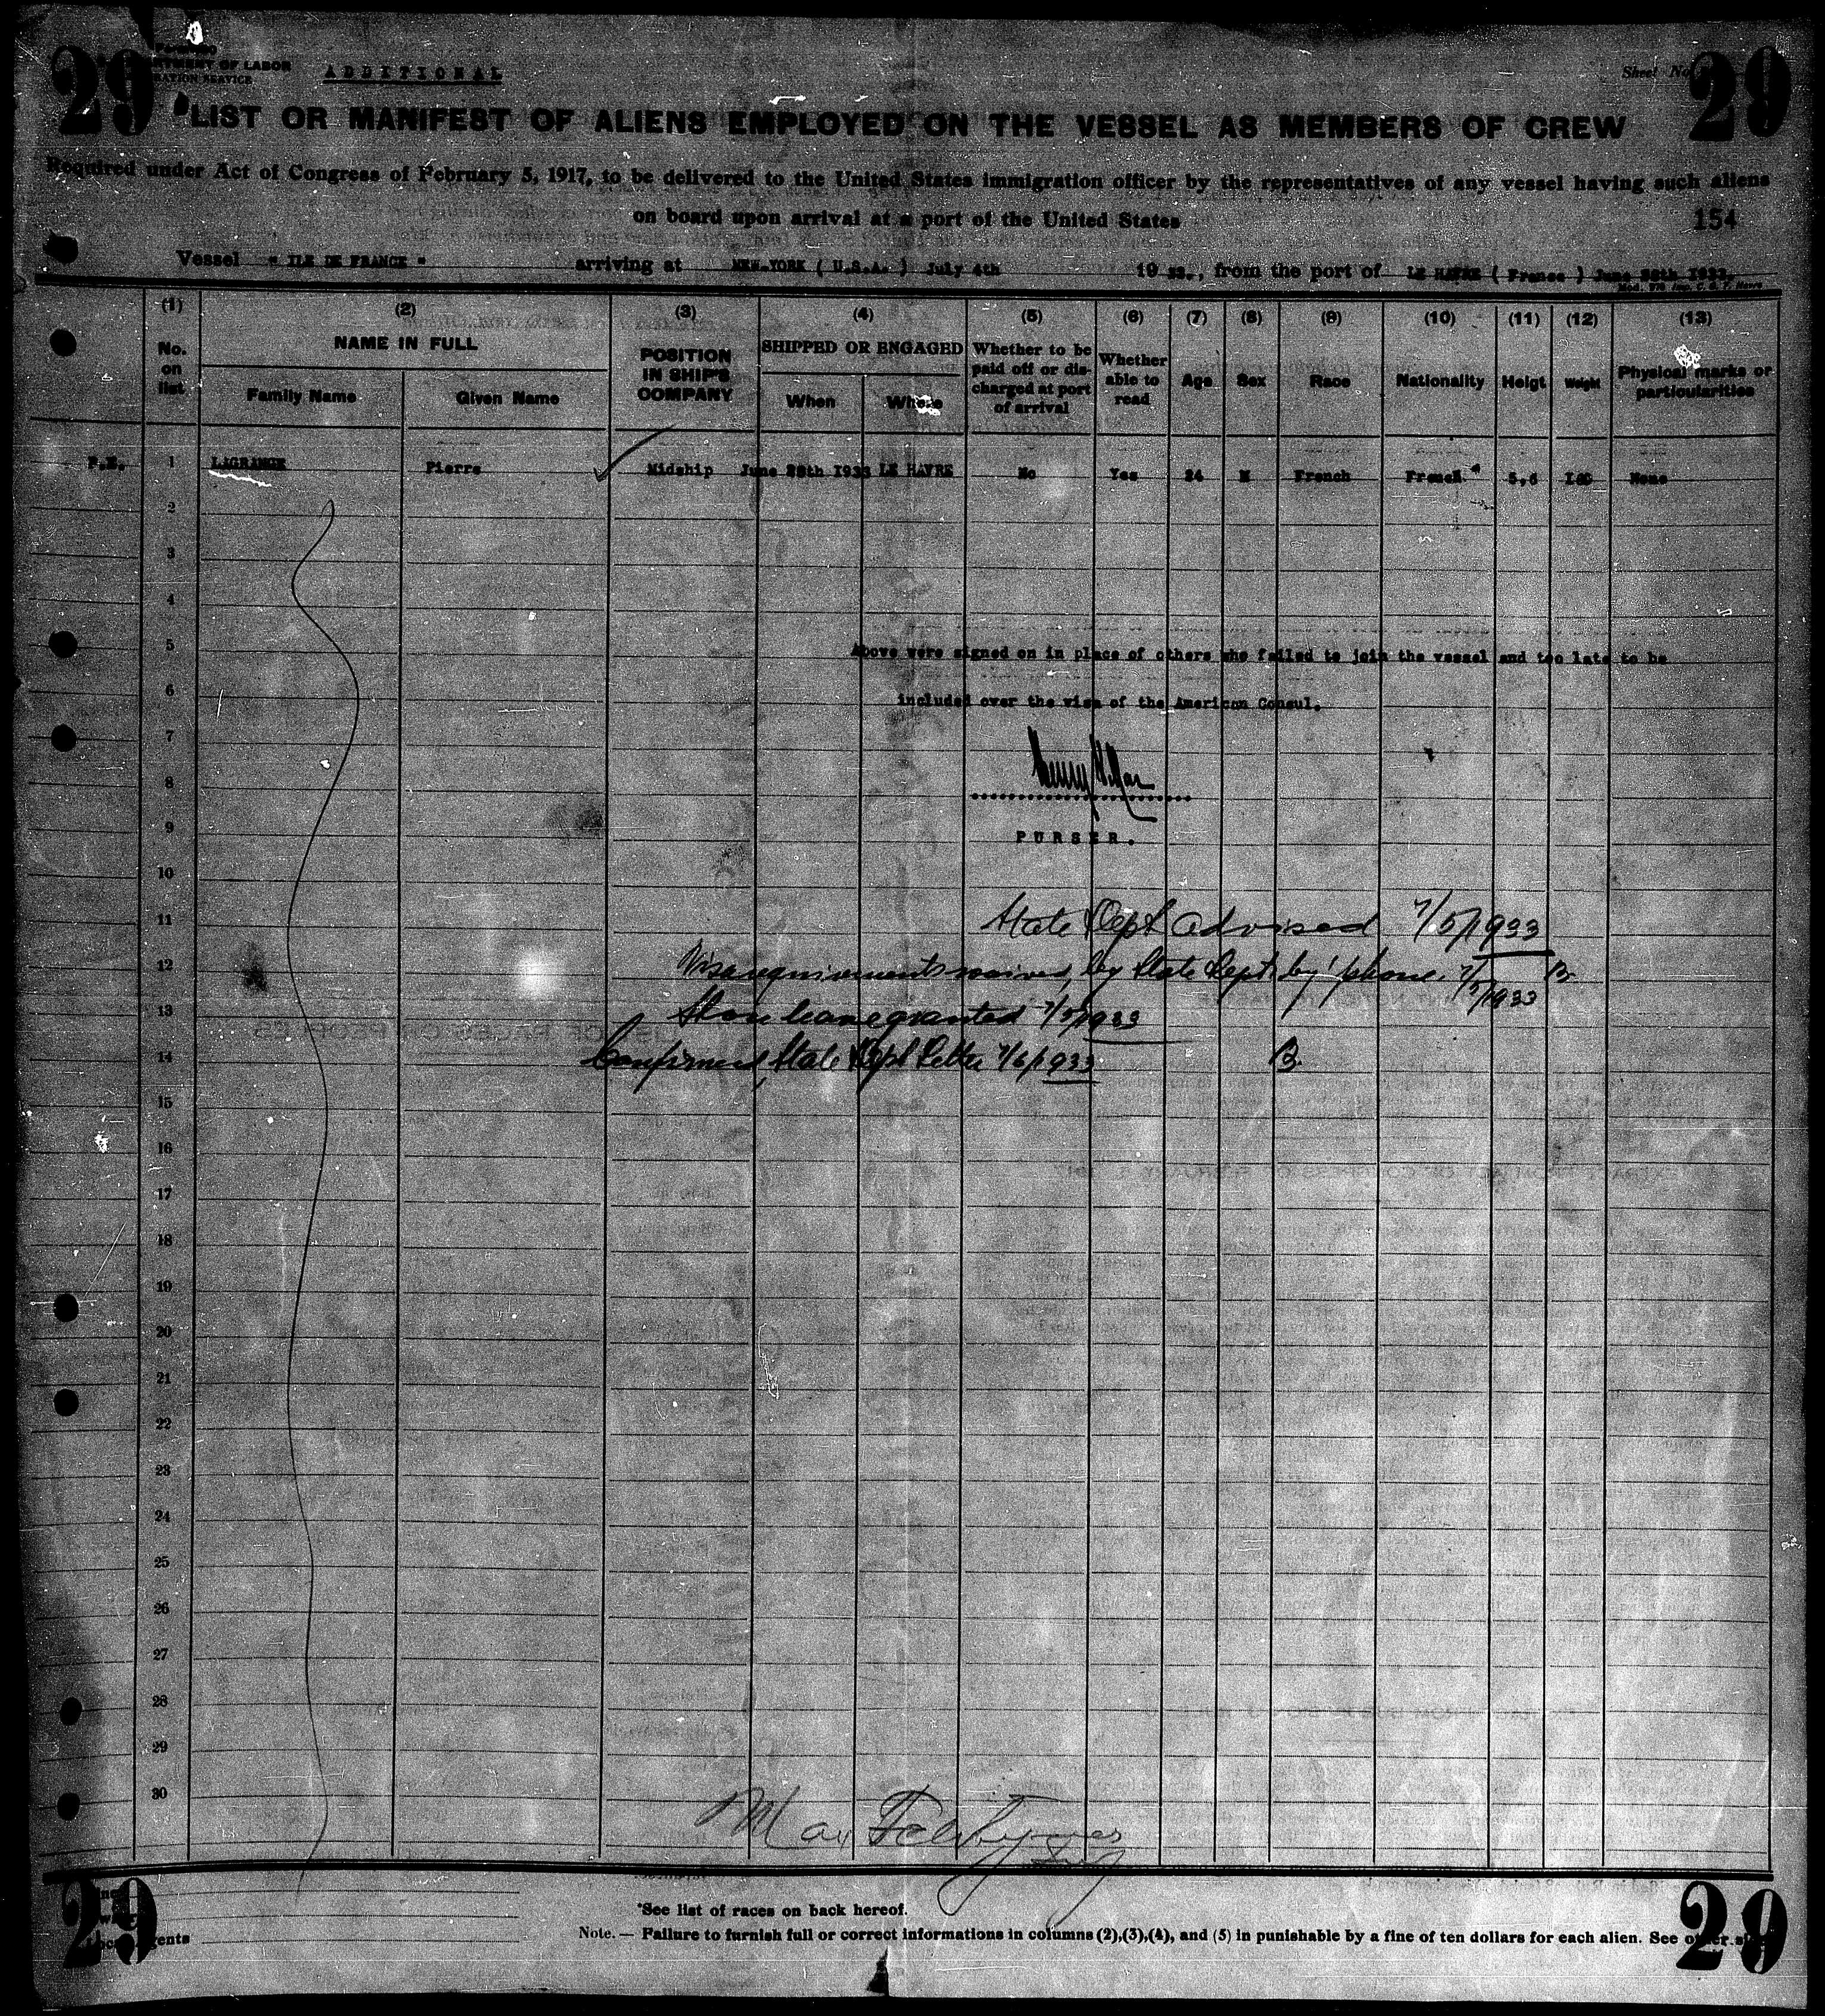 29 29
DEPARTMENT OF LABOR
IMMIGRATION SERVICE
ADDITIONAL
Sheet No.
LIST OR MANIFEST OF ALIENS EMPLOYED ON THE VESSEL AS MEMBERS OF CREW
Required under Act of Congress of February 5, 1917, to be delivered to the United States immigration officer by the representatives of any vessel having such aliens
on board upon arrival at a port of the United States
154
Vessel " ILE DE FRANCE " arriving at NEW-YORK ( U.S.A. ) July 4th 19 33., from the port of LE HAVRE ( France ) June 28th 1933.
(1) (2) (3) (4) (5) (6) (7) (8) (9) (10) (11) (12) (13)
No. on list
NAME IN FULL
Family Name
Given Name
POSITION IN SHIP'S COMPANY
SHIPPED OR ENGAGED
When
Where
Whether to be paid off or discharged at port of arrival
Whether able to read
Age
Sex
Race
Nationality
Heigt
Weight
Physical marks or particularities
1 LAGRANGE Pierre Midship June 28th 1933 LE HAVRE No Yes 24 M French French 5,6 None
2
3
4
5
Above were signed on in place of others who failed to join the vessel and too late to be
6
included over the visa of the American Consul.
7
8
9
PURSER.
10
11
State Dept advised 7/5/1933
12
Visa requirements waived, by State Dept. by 'phone. 7/5/1933 B.
13
Shore leave granted 7/5/1933
14
Confirmed, State Dept Letter 7/6/1933 B.
15
16
17
18
19
20
21
22
23
24
25
26
27
28
29
30
29 29
*See list of races on back hereof.
Note. — Failure to furnish full or correct informations in columns (2),(3),(4), and (5) in punishable by a fine of ten dollars for each alien. See other side